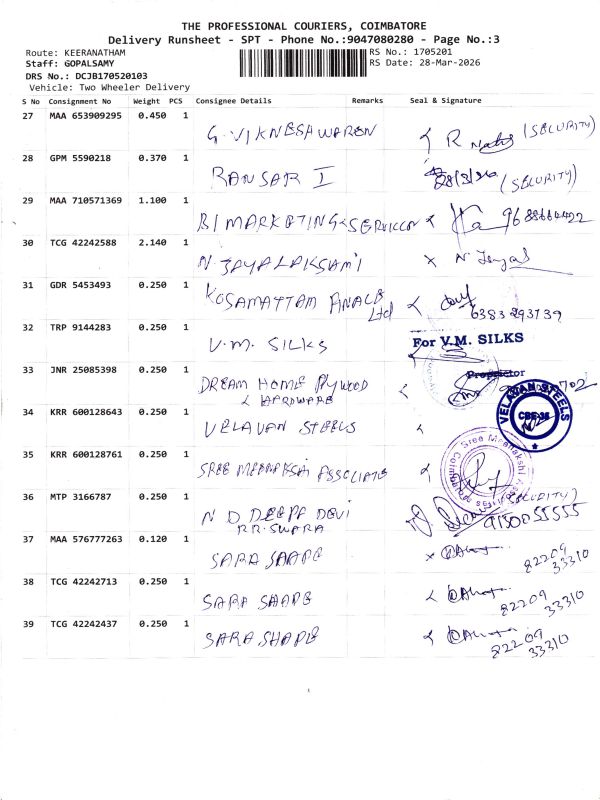 THE PROFESSIONAL COURIERS, COIMBATORE
Delivery Runsheet - SPT - Phone No.:9047080280 - Page No.:3
Route: KEERANATHAM
RS No.: 1705201
Staff: GOPALSAMY
RS Date: 28-Mar-2026
DRS No.: DCJB170520103
Vehicle: Two Wheeler Delivery
S No Consignment No Weight PCS Consignee Details Remarks Seal & Signature
27 MAA 653909295 0.450 1 G. VIKNESHWAREN R (SECURITY)
28 GPM 5590218 0.370 1 RANSAR I 28/3/26 (SECURITY)
29 MAA 710571369 1.100 1 BI MARKETING & SERVICE
30 TCG 42242588 2.140 1 N JAYALAKSAMI N Jeyal
31 GDR 5453493 0.250 1 KOSAMATTAM FINACE
Ltd 6383293739
32 TRP 9144283 0.250 1 V.M. SILKS
For V.M. SILKS
Proprietor
33 JNR 25085398 0.250 1 DREAM HOME PLYWOOD
& HARDWARE
34 KRR 600128643 0.250 1 VELAVAN STEELS
VELAVAN STEELS
CBE-35
35 KRR 600128761 0.250 1 SREE MEENAKSI ASSOCIATE
Sree Meenakshi
36 MTP 3166787 0.250 1 N D DEEPA DEVI (SECURITY)
R.R. SWARA 9150055555
37 MAA 576777263 0.120 1 SARA SHAPE 82209
33310
38 TCG 42242713 0.250 1 SARA SHAPE 82209
33310
39 TCG 42242437 0.250 1 SARA SHAPE 82209
33310